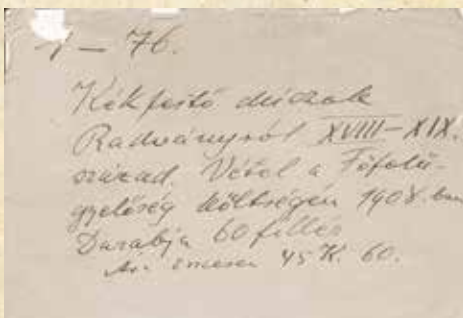 1 – 76.
Kékfestő duczok
Radványról XVIII–XIX.
század. Vétel a Főfelü-
gyelőség költségén 1908.ban
Darabja 60 fillér
45 K. 60.